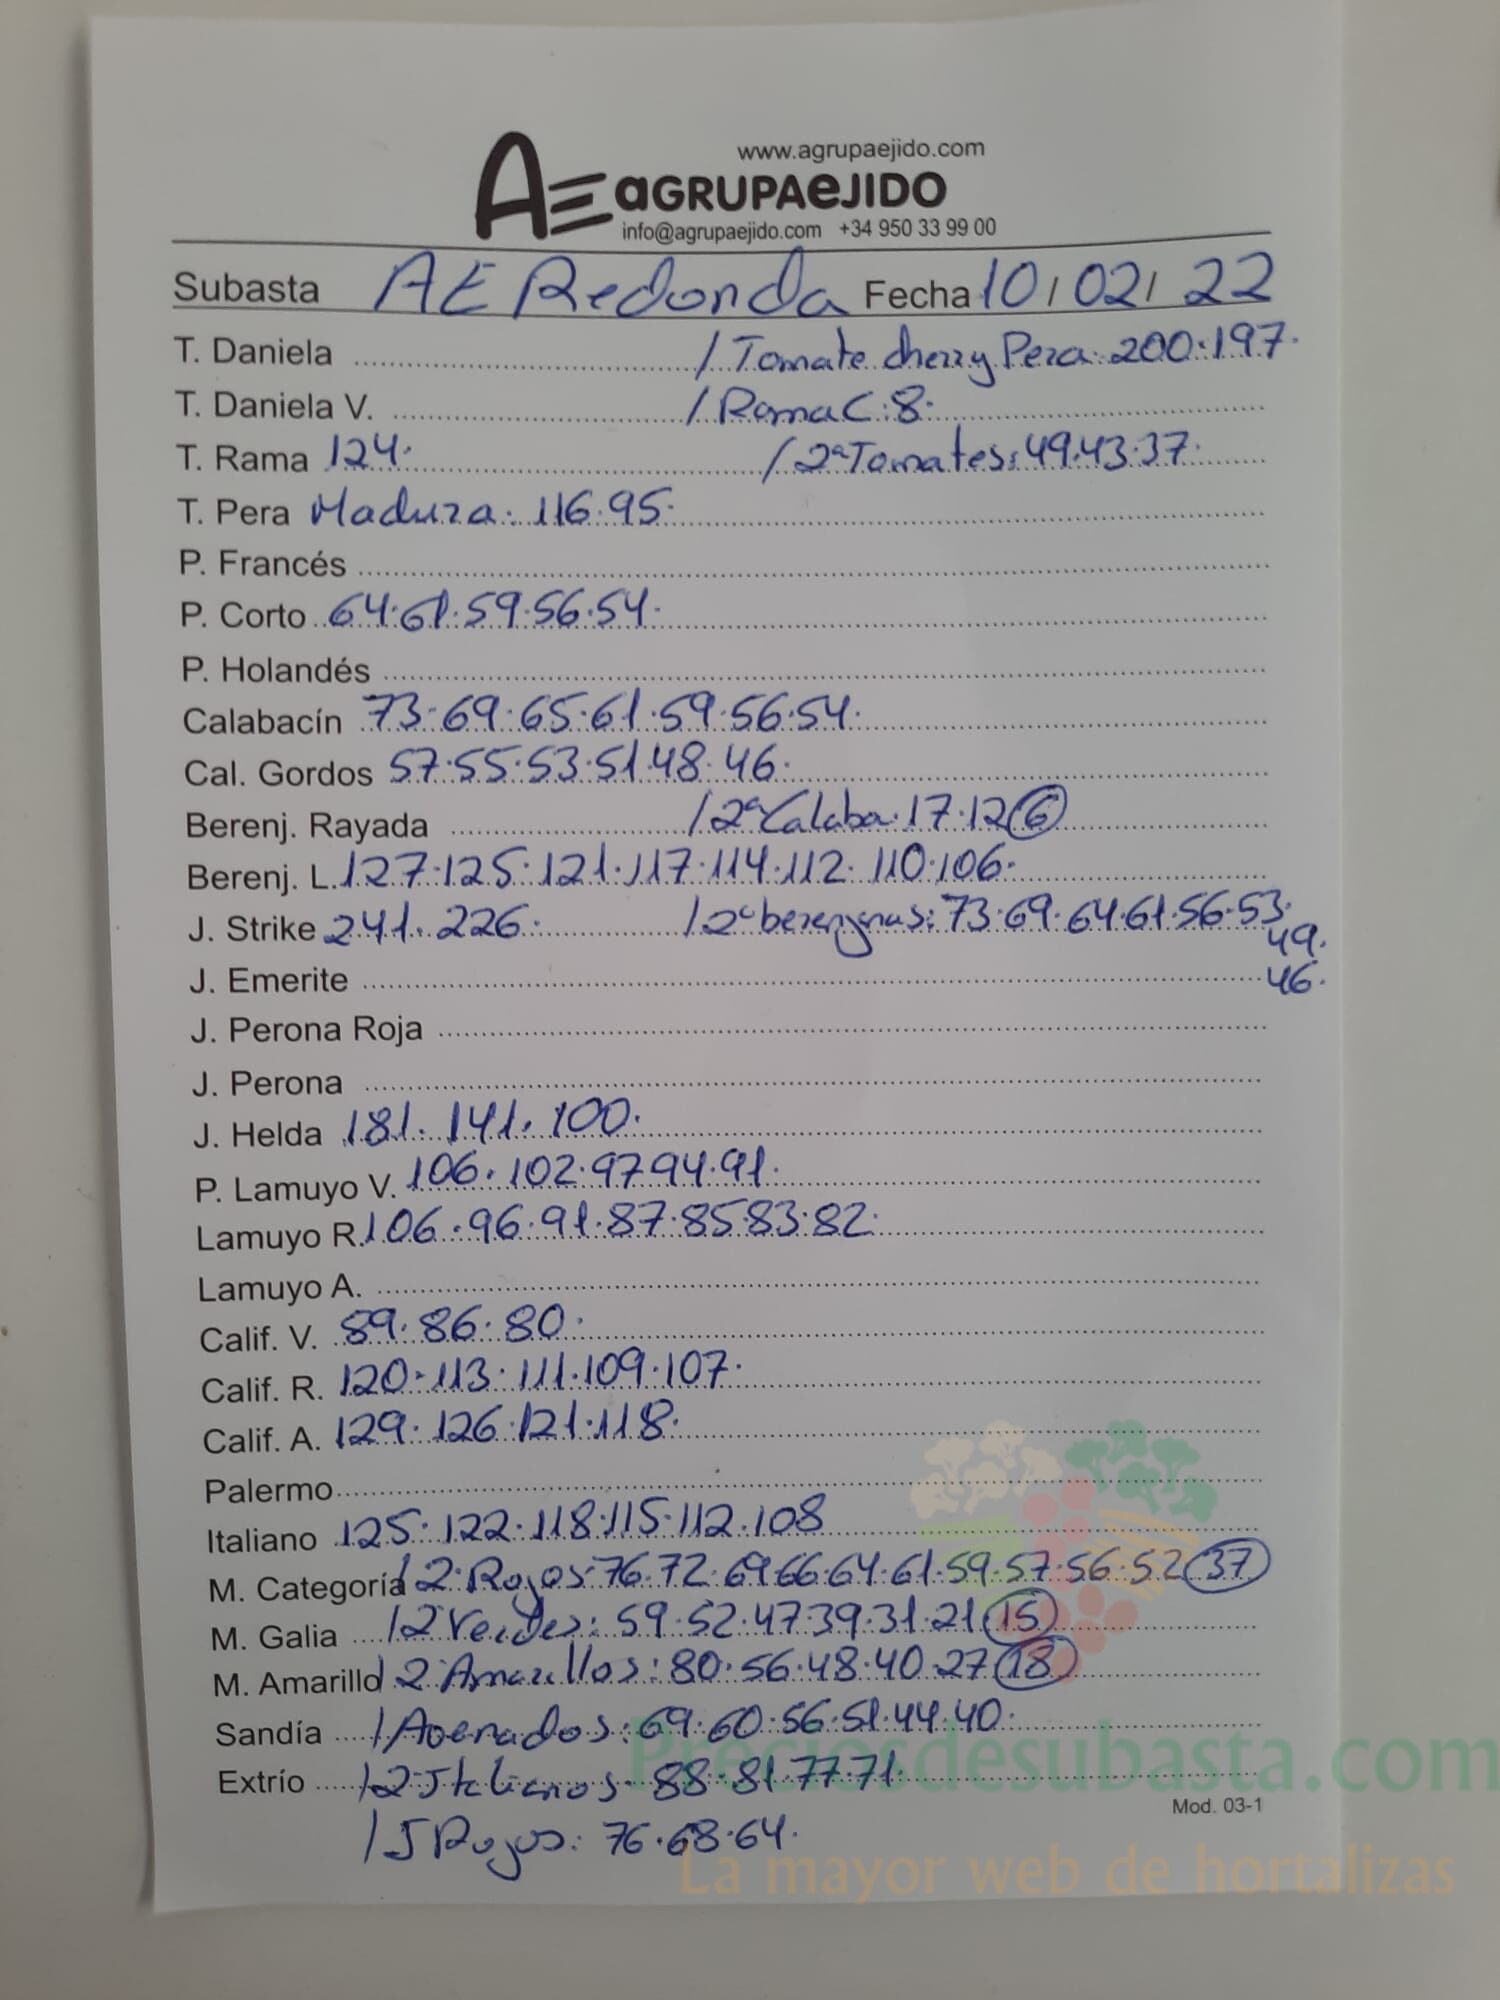 www.agrupaejido.com
AE aGRUPAeJIDO
info@agrupaejido.com +34 950 33 99 00
Subasta AE Redonda Fecha 10/02/22
T. Daniela / Tomate cherry Pera: 200·197·
T. Daniela V. / Rama C: 8·
T. Rama 124· / 2ª Tomates: 49·43·37·
T. Pera Madura: 116·95·
P. Francés
P. Corto 64·61·59·56·54·
P. Holandés
Calabacín 73·69·65·61·59·56·54·
Cal. Gordos 57·55·53·51·48·46·
Berenj. Rayada / 2ª Calaba·17·12 6
Berenj. L. 127·125·121·117·114·112·110·106·
J. Strike 241·226· / 2ª berenjenas: 73·69·64·61·56·53·
49·
J. Emerite 46·
J. Perona Roja
J. Perona
J. Helda 181·141·100·
P. Lamuyo V. 106·102·97·94·91·
Lamuyo R. 106·96·91·87·85·83·82·
Lamuyo A.
Calif. V. 89·86·80·
Calif. R. 120·113·111·109·107·
Calif. A. 129·126·121·118·
Palermo
Italiano 125·122·118·115·112·108
M. Categoría / 2 Rojos·76·72·69·66·64·61·59·57·56·52 37
M. Galia / 2 Verdes: 59·52·47·39·31·21 15
M. Amarillo 2 Amarillos: 80·56·48·40·27 18
Sandía / Asenados: 69·60·56·51·44·40·
Extrío / 2 Italianos· 88·81·77·71·
Preciosdesubasta.com
Mod. 03-1
/ J Rojos: 76·68·64·
La mayor web de hortalizas